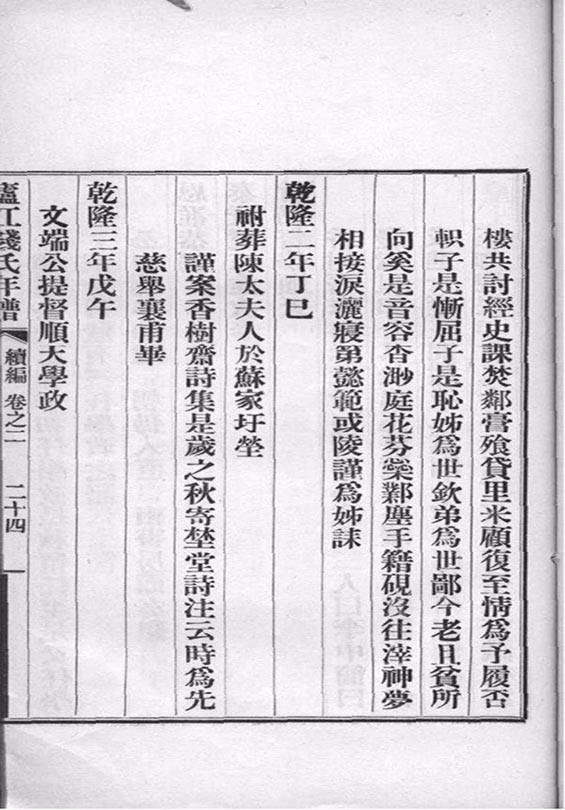 樓共討經史課焚鄰膏飱貸里米顧復至情爲予履否
幟子是慚屈子是恥姊爲世欽弟爲世鄙今老且貧所
向奚是音容杳渺庭花芬櫱鄴塵手籍硯沒往滓神夢
相接淚灑寢第懿範或陵謹爲姊誄
乾隆二年丁巳
祔葬陳太夫人於蘇家圩塋
謹案香樹齋詩集是歲之秋寄埜堂詩注云時爲先
慈舉襄甫畢
乾隆三年戊午
文端公提督順天學政
廬江錢氏年譜 續編 卷之二 二十四